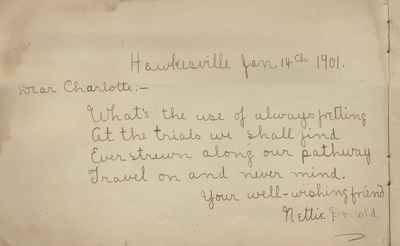 Hawkesville Jan. 14th 1901.
Dear Charlotte:-
What's the use of always fretting
At the trials we shall find
Ever strewn along our pathway
Travel on and never mind.
Your well-wishing friend
Nettie